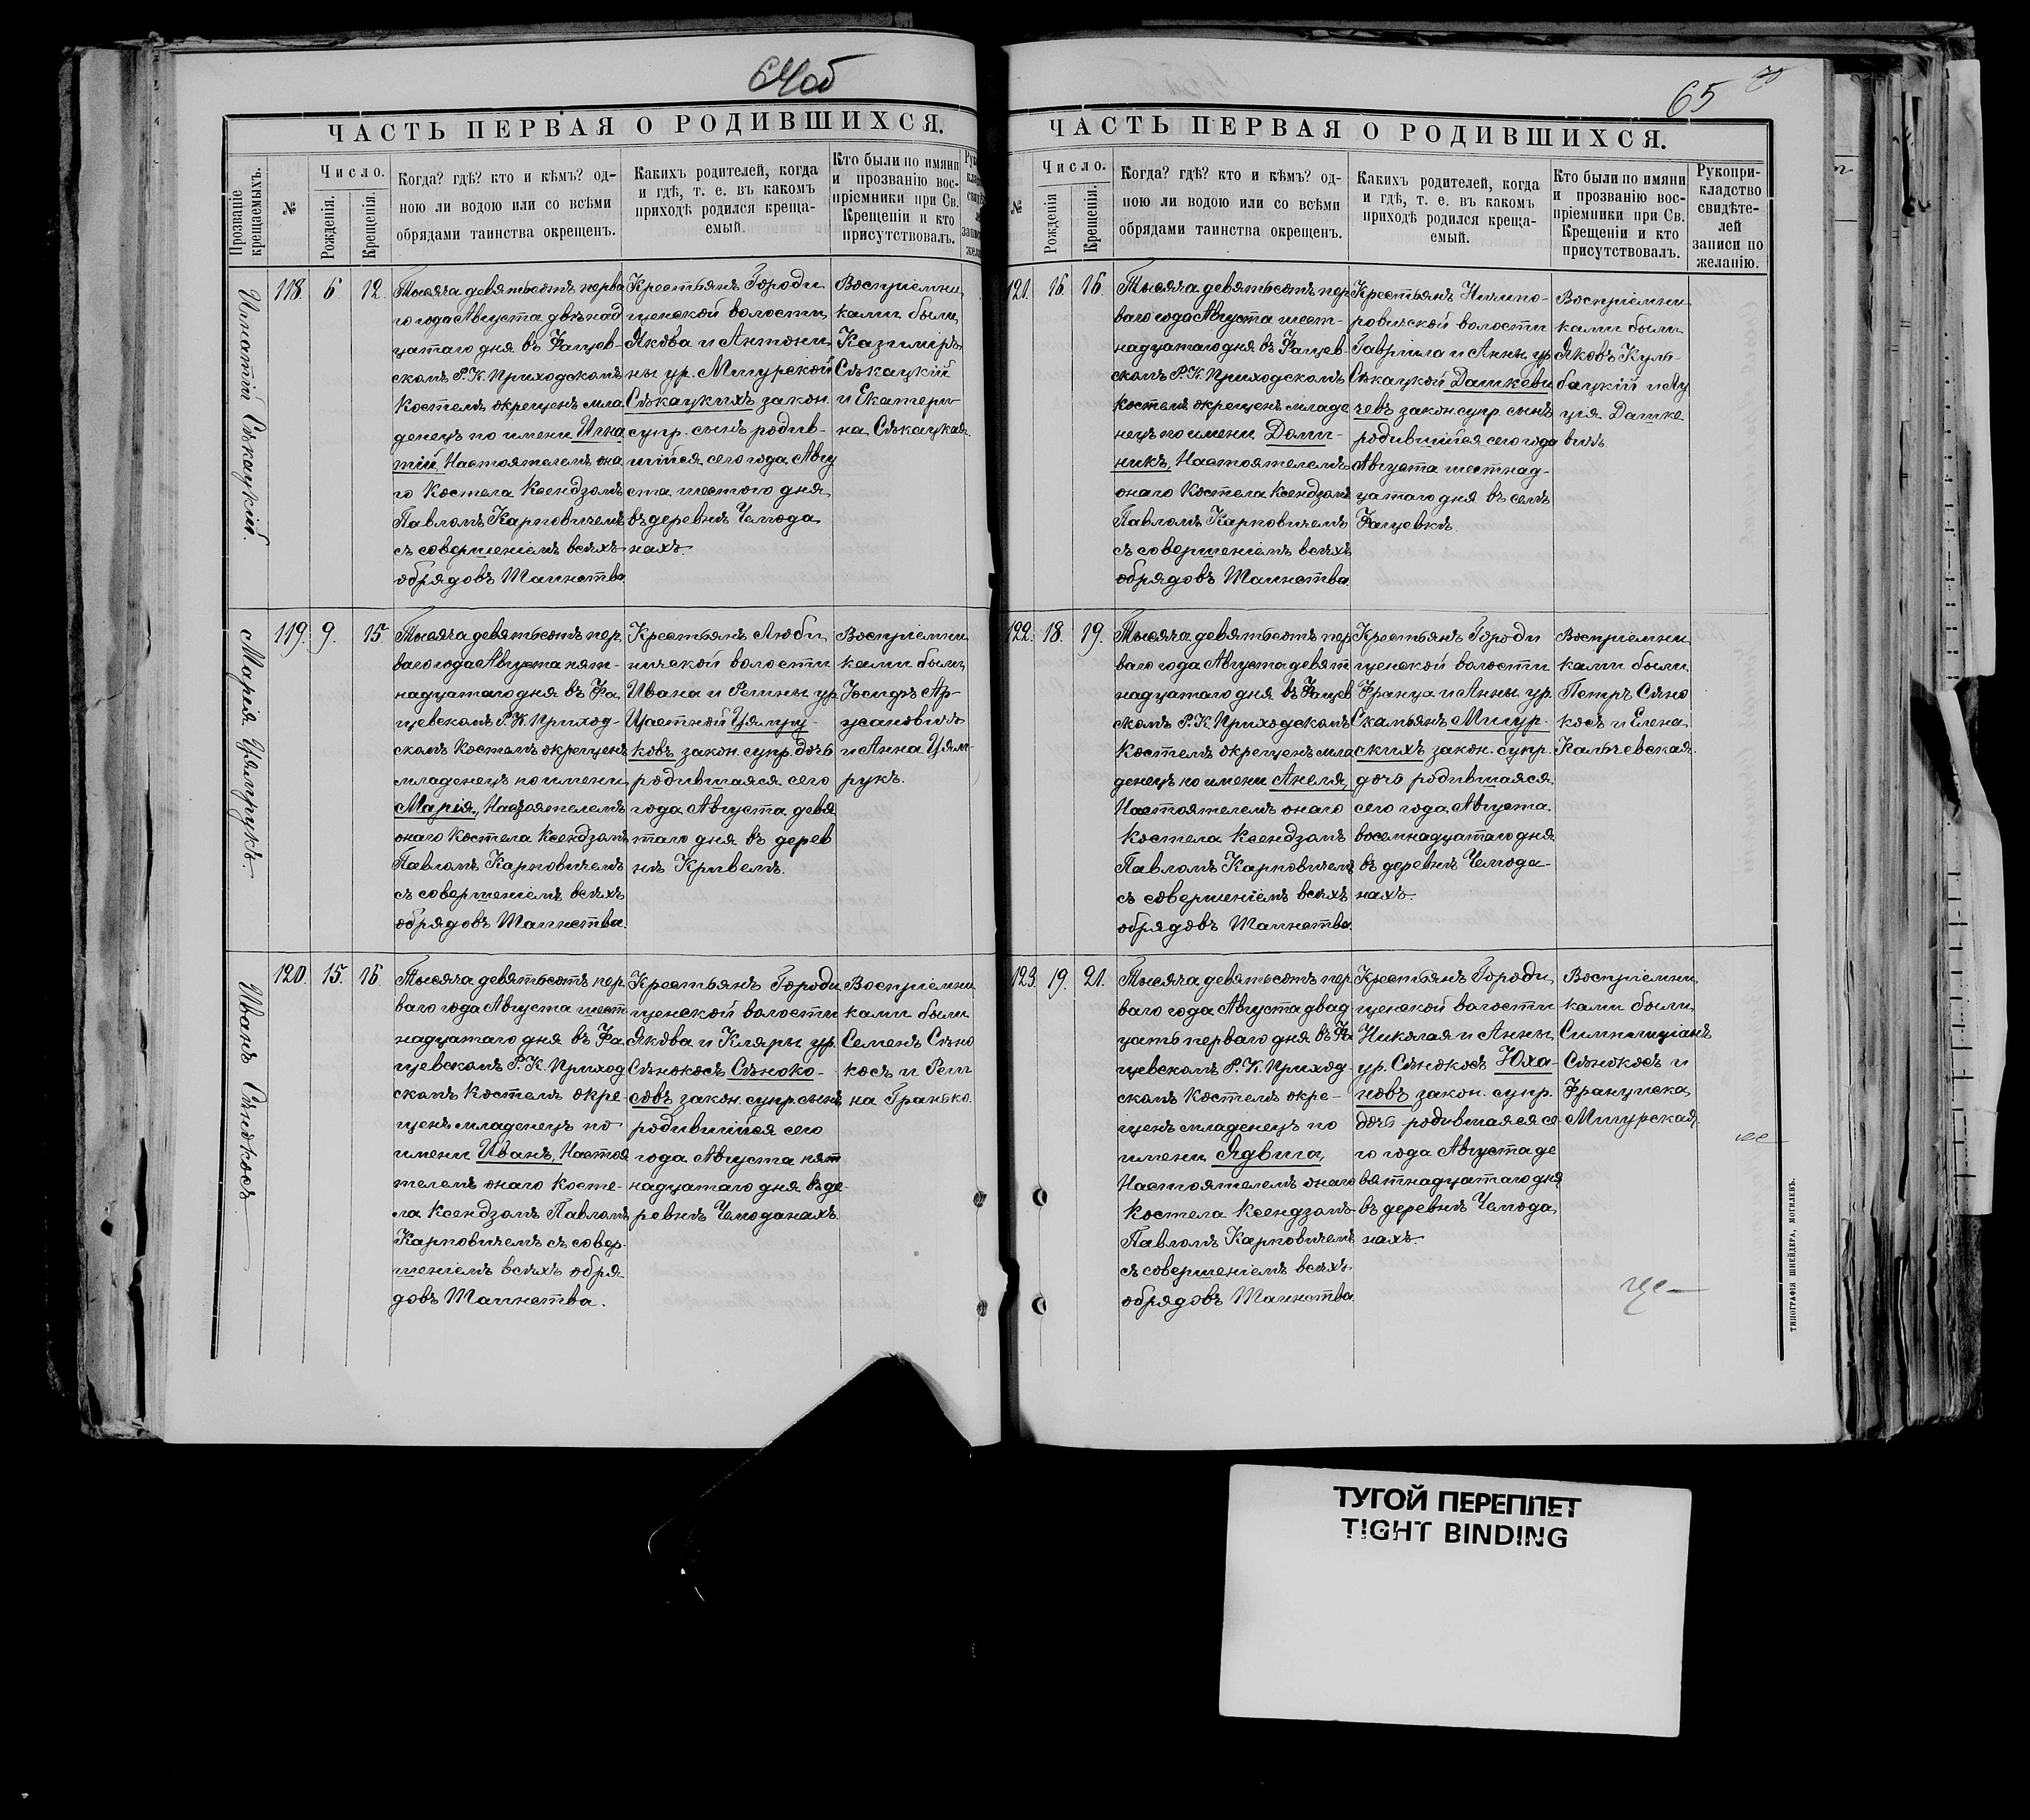 64об
ЧАСТЬ ПЕРВАЯ О РОДИВШИХСЯ.
Прозваніе крещаемыхъ.
№
Число.
Рожденія.
Крещенія.
Когда? гдѣ? кто и кѣмъ? од-
ною ли водою или со всѣми
обрядами таинства окрещенъ.
Какихъ родителей, когда
и гдѣ, т. е. въ какомъ
приходѣ родился креща-
емый.
Кто были по имяни
и прозванію вос-
пріемники при Св.
Крещеніи и кто
присутствовалъ.
Игнатій Сѣкацкій.
118. 6 12.
Тысяча девятьсотъ перва
го года Августа двѣнад
цатаго дня въ Фащев-
скомъ Р. К. Приходскомъ
Костелѣ окрещенъ мла
денецъ по имени Игна
тій, Настоятелемъ она
го Костела Ксендзомъ
Павломъ Карповичемъ
съ совершеніемъ всѣхъ
обрядовъ Таинства.
Крестьянъ Городи
щенской волости
Якова и Антони
ны ур. Мигурской
Сѣкацкихъ закон.
супр. сынъ родив-
шійся сего года Авгу
ста шестого дня
въ деревнѣ Чемода
нахъ.
Воспріемни
ками были
Казиміръ
Сѣкацкій
и Екатери
на Сѣкацкая.
Марія Цямрукъ.
119. 9. 15.
Тысяча девятьсотъ пер
ваго года Августа пят-
надцатаго дня въ Фа
щевскомъ Р. К. Приход-
скомъ Костелѣ окрещенъ
младенецъ по имени
Марія, Настоятелемъ
онаго Костела Ксендзомъ
Павломъ Карповичемъ
съ совершеніемъ всѣхъ
обрядовъ Таинства.
Крестьянъ Люби
ничской волости
Ивана и Регины ур.
Щастной Цямру-
ковъ закон. супр. дочь
родившаяся сего
года Августа девя
таго дня въ дерев
нѣ Кривелѣ.
Воспріемни
ками были
Іосифъ Ар-
цисановичъ
и Анна Цям-
рукъ.
Иванъ Сѣнокосъ
120. 15. 16.
Тысяча девятьсотъ пер
ваго года Августа шест
надцатаго дня въ Фа
щевскомъ Р. К. Приход
скомъ Костелѣ окре-
щенъ младенецъ по
имени Иванъ, Настоя
телемъ онаго Косте-
ла Ксендзомъ Павломъ
Карповичемъ съ совер-
шеніемъ всѣхъ обря
довъ Таинства.
Крестьянъ Городи
щенской волости
Якова и Кляры ур.
Сѣнокосъ Сѣноко-
совъ закон. супр. сынъ
родившійся сего
года Августа пят
надцатаго дня въ де
ревнѣ Чемоданахъ.
Воспріемни
ками были
Семенъ Сѣно
косъ и Реги
на Гранько.
65
ЧАСТЬ ПЕРВАЯ О РОДИВШИХСЯ.
№
Число.
Рожденія
Крещенія.
Когда? гдѣ? кто и кѣмъ? од-
ною ли водою или со всѣми
обрядами таинства окрещенъ.
Какихъ родителей, когда
и гдѣ, т. е. въ какомъ
приходѣ родился креща-
емый.
Кто были по имяни
и прозванію вос-
пріемники при Св.
Крещеніи и кто
присутствовалъ.
Рукопри-
кладство
свидѣте-
лей
записи по
желанію.
121. 16. 16.
Тысяча девятьсотъ пер
ваго года Августа шест-
надцатаго дня въ Фащев
скомъ Р. К. Приходскомъ
Костелѣ окрещенъ младе
нецъ по имени Доми-
никъ, Настоятелемъ
онаго Костела Ксендзомъ
Павломъ Карповичемъ
съ совершеніемъ всѣхъ
обрядовъ Таинства.
Крестьянъ Ничипо-
ровичской волости
Гавріила и Анны ур.
Сѣкацкой Дашкеви
чевъ закон. супр. сынъ
родившійся сего года
Августа шестнад-
цатаго дня въ селѣ
Фащевкѣ.
Воспріемни
ками были
Яковъ Куль-
бацкій и Лу
ція Дашке
вичъ.
122. 18. 19.
Тысяча девятьсотъ пер
ваго года Августа девят
надцатаго дня въ Фащев
скомъ Р. К. Приходскомъ
Костелѣ окрещенъ мла
денецъ по имени Анеля,
Настоятелемъ онаго
Костела Ксендзомъ
Павломъ Карповичемъ
съ совершеніемъ всѣхъ
обрядовъ Таинства.
Крестьянъ Городи
щенской волости
Франца и Анны ур.
Скамьянъ Мигур-
скихъ закон. супр.
дочь родившаяся
сего года Августа
восемнадцатаго дня
въ деревнѣ Чемода-
нахъ.
Воспріемни
ками были
Петръ Сѣно
косъ и Елена
Кальчевская.
123. 19. 21.
Тысяча девятьсотъ пер
ваго года Августа двад
цать перваго дня въ Фа
щевскомъ Р. К. Приход-
скомъ Костелѣ окре-
щенъ младенецъ по
имени Ядвига,
Настоятелемъ онаго
Костела Ксендзомъ
Павломъ Карповичемъ
съ совершеніемъ всѣхъ
обрядовъ Таинства.
Крестьянъ Городи
щенской волости
Николая и Анны
ур. Сѣнокосъ Юха-
новъ закон. супр.
дочь родившаяся се
го года Августа де
вятнадцатаго дня
въ деревнѣ Чемода
нахъ.
Воспріемни
ками были
Симплиціанъ
Сѣнокосъ и
Франциска
Мигурская.
ТИПОГРАФІЯ ШНЕЙДЕРА, МОГИЛЕВЪ.
ТУГОЙ ПЕРЕПЛЕТ
TIGHT BINDING